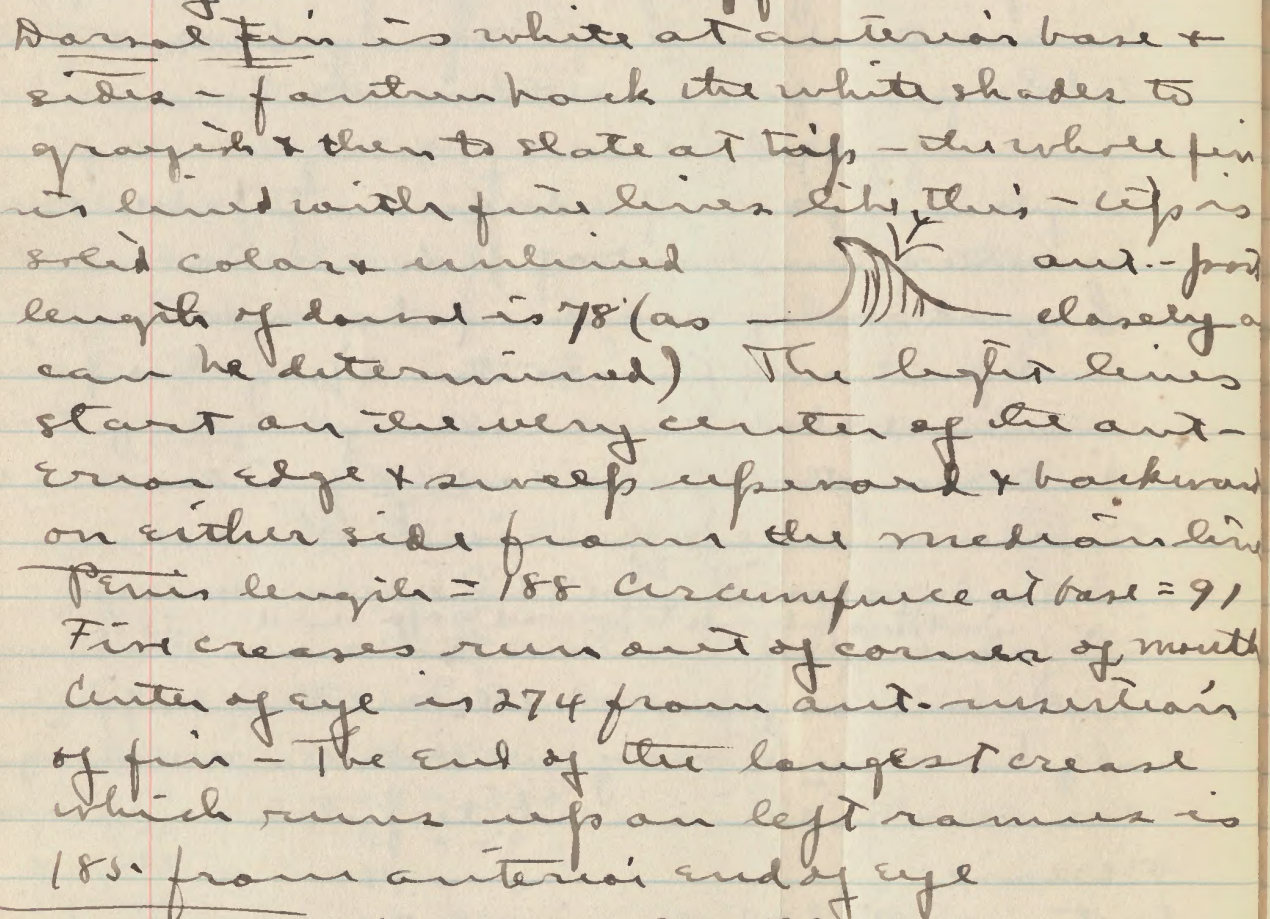 Dorsal Fin is white at anterior base &
sides - farther back the white shades to
grayish & then to slate at tip - the whole fin
is lined with fine lines like this - tip is
solid color & unlined ant.- post
length of dorsal is 78 (as closely a
can be determined) The light lines
start on the very center of the ant-
erior edge & sweep upward & backward
on either side from the median line
Penis length = 188 Circumfrence at base = 91
Five creases run out of corner of mouth
Center of eye is 274 from ant. insertion
of fin - The end of the longest crease
which runs up on left ramus is
185. from anterior end of eye